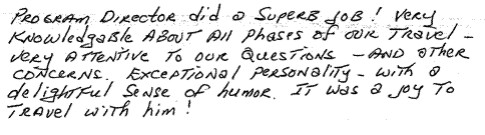 Program Director did a Superb job! Very
Knowledgable About All phases of our Travel -
very Attentive To our Questions - And other
concerns. Exceptional personality - with a
delightful Sense of humor. It was a joy To
Travel with him!